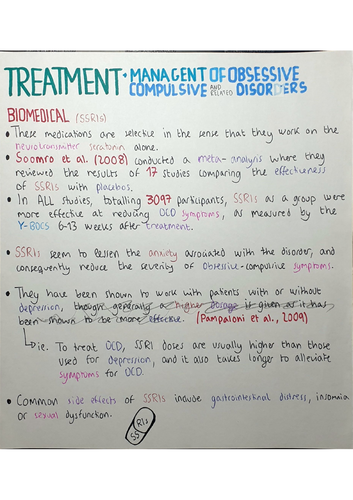 TREATMENT + MANAGENT OF OBSESSIVE
COMPULSIVE AND RELATED DISORDERS
BIOMEDICAL (SSRIs)
• These medications are selective in the sense that they work on the
neurotransmitter serotonin alone.
• Soomro et al. (2008) conducted a meta-analysis where they
reviewed the results of 17 studies comparing the effectiveness
of SSRIs with placebos.
• In ALL studies, totalling 3097 participants, SSRIs as a group were
more effective at reducing OCD symptoms, as measured by the
Y-BOCS 6-13 weeks after treatment.
• SSRIs seem to lessen the anxiety associated with the disorder, and
consequently reduce the severity of obsessive-compulsive symptoms.
• They have been shown to work with patients with or without
depression, though generally a higher dosage is given as it has
been shown to be more effective. (Pampaloni et al., 2009)
↳ ie. To treat OCD, SSRI doses are usually higher than those
used for depression, and it also takes longer to alleviate
symptoms for OCD.
• Common side effects of SSRIs include gastrointestinal distress, insomnia
or sexual dysfunction.
SSRIs